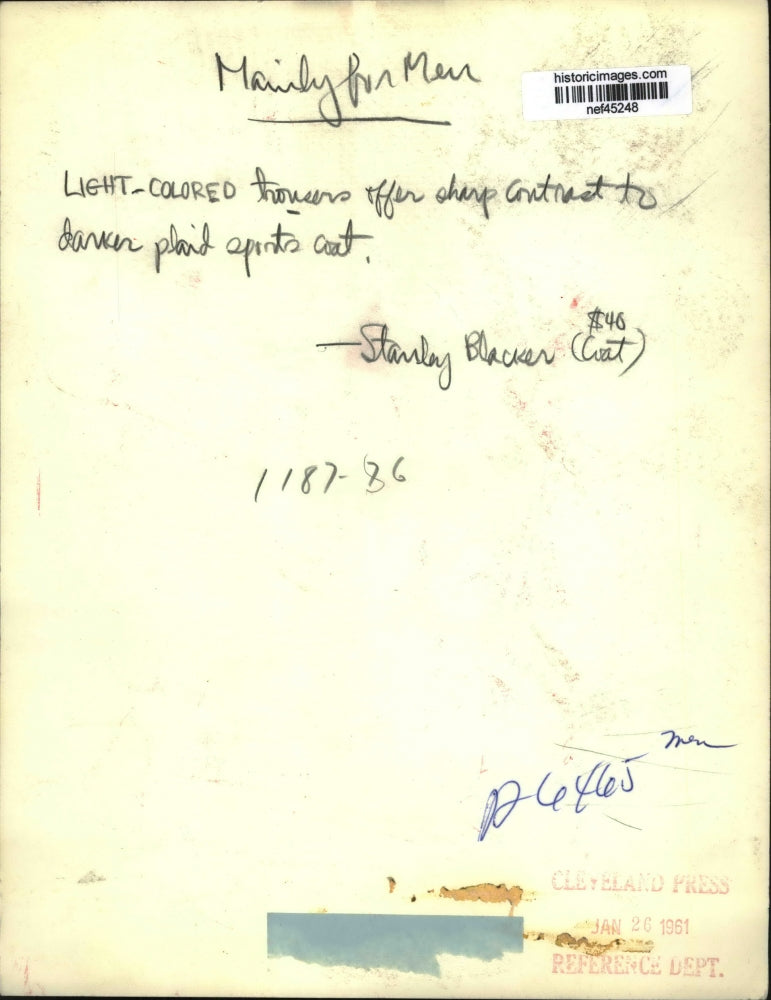 Mainly for Men
historicimages.com
nef45248
LIGHT-COLORED trousers offer sharp contrast to
darker plaid sports coat.
$40
—Stanley Blacker (Coat)
1187-36
men
P6465
CLEVELAND PRESS
JAN 26 1961
REFERENCE DEPT.